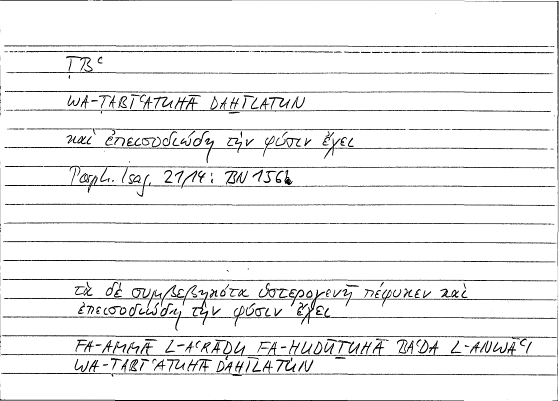 ṬBʿ
WA-ṬABĪʿATUHĀ DAḪĪLATUN
καὶ ἐπεισοδιώδη τὴν φύσιν ἔχει
Porph. Isag. 21,14: BN 156b
τὰ δὲ συμβεβηκότα ὑστερογενῆ πέφυκεν καὶ
ἐπεισοδιώδη τὴν φύσιν ἔχει
FA-AMMĀ L-AʿRĀḌU FA-ḤUDŪṮUHĀ BAʿDA L-ANWĀʿI
WA-ṬABĪʿATUHĀ DAḪĪLATUN